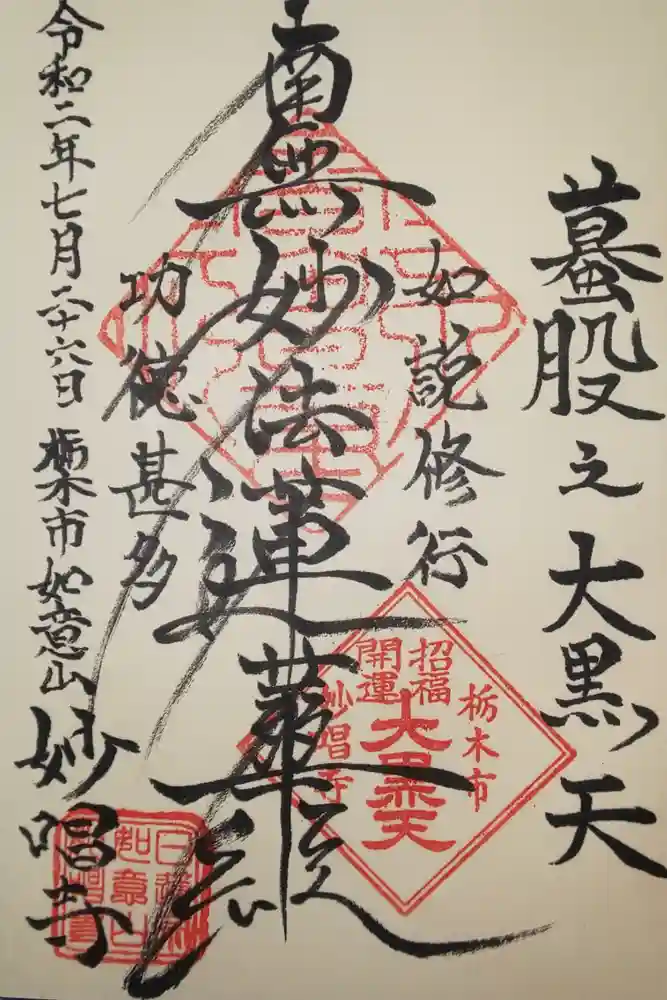 蟇股之大黒天
如説修行
南無妙法蓮華経
功徳甚多
令和二年七月二十六日 栃木市如意山
妙唱寺
栃木市
招福
開運
大黒天
妙唱寺
如意山